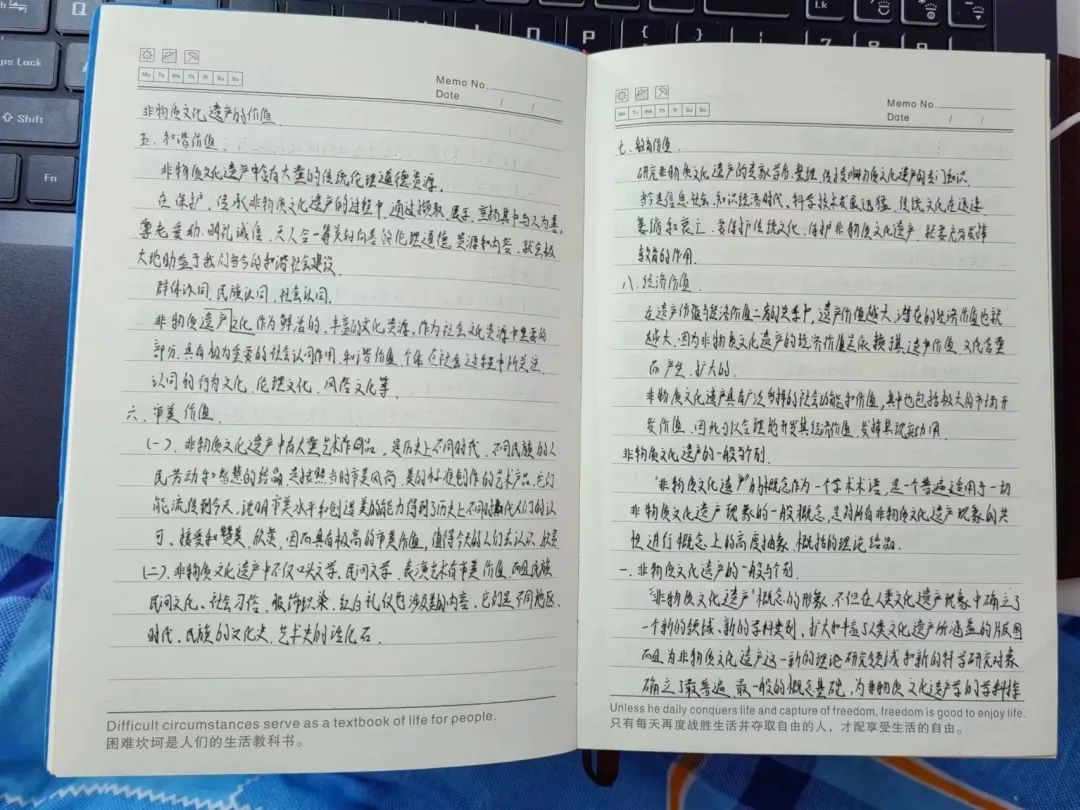 Mo Tu We Th Fr Sa Su
Memo No.
Date / /
非物质文化遗产的价值
五、和谐价值
非物质文化遗产中含有大量的传统伦理道德资源。
在保护、传承非物质文化遗产的过程中,通过撷取、展示、宣扬其中与人为善,
尊老爱幼、明礼诚信、天人合一等美好向善的伦理道德资源和内容,就会极
大地助益于我们当今的和谐社会建设。
群体认同、民族认同、社会认同。
非物质遗产文化作为鲜活的、丰富的文化资源,作为社会文化资源中重要的
部分,具有极为重要的社会认同作用、和谐价值、个体在社会过程中所关注、
认同的行为文化、伦理文化、风俗文化等。
六、审美价值
(一)、非物质文化遗产中有大量艺术作品,是历史上不同时代、不同民族的人
民劳动和智慧的结晶,是按照当时审美风尚、美的标准创作的艺术产品,它们
能流传到今天,说明审美水平和创造美的能力得到了历史上不同时代人们的认
可、接受和赞美、欣赏,因而具有极高的审美价值,值得今天的人们去认识、欣赏
(二)、非物质文化遗产中不仅口头文学、民间文学、表演艺术有审美价值,而且民族
民间文化、社会习俗、服饰织染、红白礼仪也涉及美的内容,它们是不同地区、
时代、民族的文化史、艺术史的活化石。
Difficult circumstances serve as a textbook of life for people.
困难坎坷是人们的生活教科书。
Mo Tu We Th Fr Sa Su
Memo No.
Date / /
七、教育价值
研究非物质文化遗产的专家学者,整理、传授非物质文化遗产的专门知识。
当今是信息社会、知识经济时代,科学技术发展迅猛,传统文化在迅速
萎缩和衰亡,要保护传统文化、保护非物质文化遗产,就要充分发挥
教育的作用。
八、经济价值
在遗产价值与经济价值二者的关系中,遗产价值越大,潜在的经济价值也就
越大,因为非物质文化遗产的经济价值是依据其遗产价值、文化含量
而产生、扩大的。
非物质文化遗产具有广泛多样的社会功能和价值,其中也包括极大的市场开
发价值,因此可以合理地开发其经济价值,发挥其现实功用。
非物质文化遗产的一般与个别
“非物质文化遗产”的概念作为一个学术术语,是一个普遍适用于一切
非物质文化遗产现象的一般概念,是对所有非物质文化遗产现象的共
性进行概念上的高度抽象、概括的理论结晶。
一、非物质文化遗产的一般与个别
“非物质文化遗产”概念的形象,不但在人类文化遗产现象中确立了
一个新的领域、新的学科类别,扩大和丰富了人类文化遗产所涵盖的版图
而且为非物质文化遗产这一新的理论研究领域和新的科学研究对象
确立了最普遍、最一般的概念基础,为非物质文化遗产学的学科
Unless he daily conquers life and capture of freedom, freedom is good to enjoy life.
只有每天再度战胜生活并夺取自由的人,才配享受生活的自由。
ps Lock
Shift
Fn
Lk
P